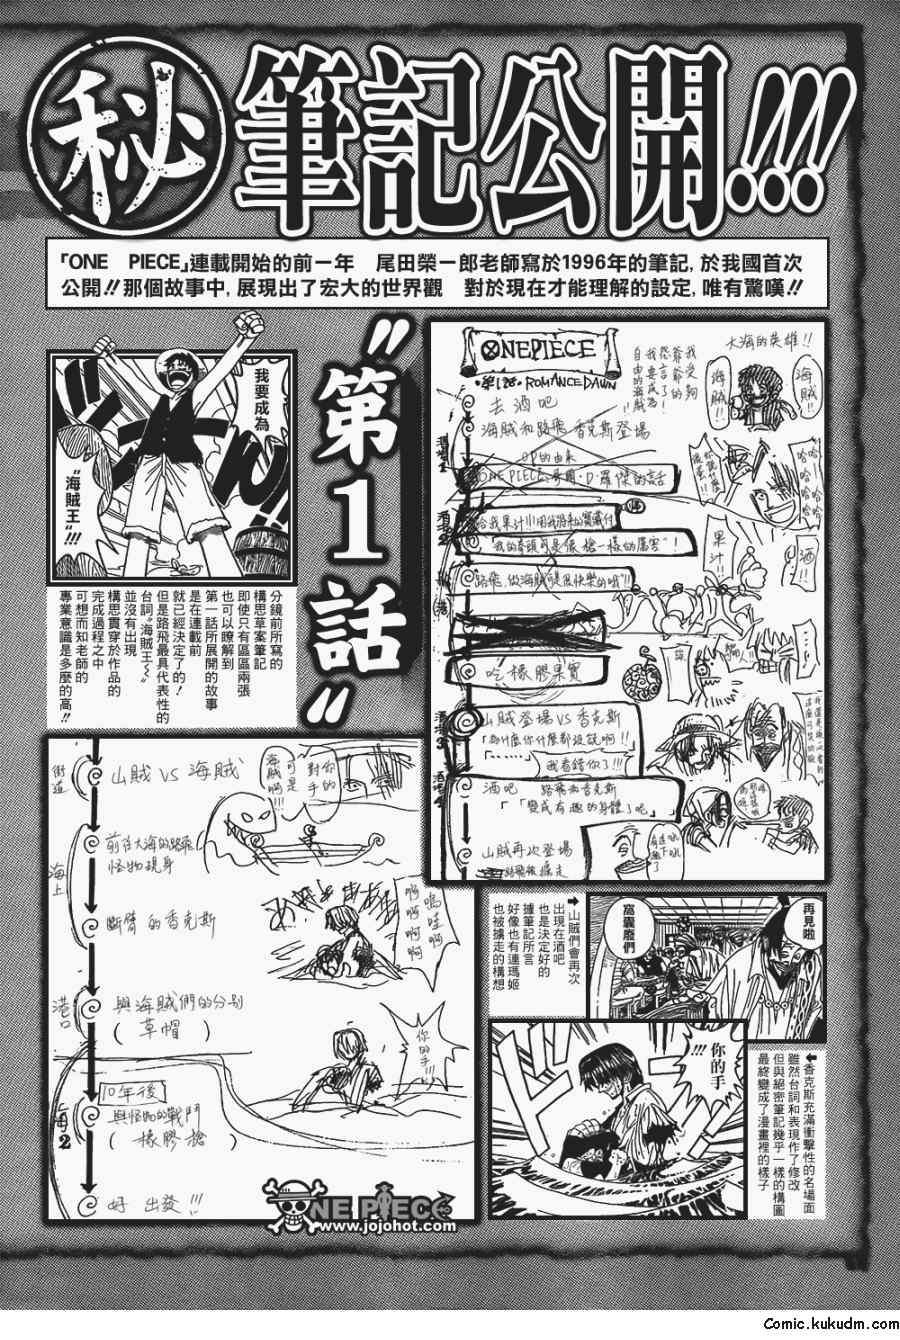 秘
筆記公開!!!!
「ONE PIECE」連載開始的前一年 尾田榮一郎老師寫於1996年的筆記,於我國首次
公開!!那個故事中,展現出了宏大的世界觀 對於現在才能理解的設定,唯有驚嘆!!
"第1話"
我要成為
"海賊王"!!!
分鏡前所寫的
構思草案筆記
即使只有區區兩張
也可以瞭解到
第一話所展開的故事
是在連載前
就已經決定了的!
但是路飛最具代表性的
台詞"海賊王~"
並沒有出現
構思貫穿於作品的
完成過程之中
可想而知老師的
專業意識是多麼的高!!
ONEPIECE
第1話 ROMANCE DAWN
大海的英雄!!
海賊!!
海賊!!
去酒吧
海賊和路飛 香克斯登場
OP的由來
酒!
果汁!
"我的拳頭可是像槍一樣的厲害"!
路飛,做海賊可是很快樂的哦!!
吃橡膠果實
山賊登場 VS 香克斯
「為什麼你什麼都沒說啊!!
「……」
我看錯你了!!!
酒吧 路飛去香克斯
「變成有趣的身體了吧」
山賊再次登場
街道
山賊 VS 海賊
海上
前往大海的路飛
怪物現身
斷臂的香克斯
港口
與海賊們的分别
(草帽)
10年後
與怪物的戰鬥
(橡膠槍)
好 出發!!!
你的手
再見啦
窩囊廢們
➡山賊們會再次
出現在酒吧
也是決定好的
據筆記所言
好像也有連瑪姬
也被擄走的構想
你的手
!!!
⬅香克斯充滿衝擊性的名場面
雖然台詞和表現作了修改
但與絕密筆記幾乎一樣的構圖
最終變成了漫畫裡的樣子
ONE PIECE
www.jojohot.com
Comic.kukudm.com